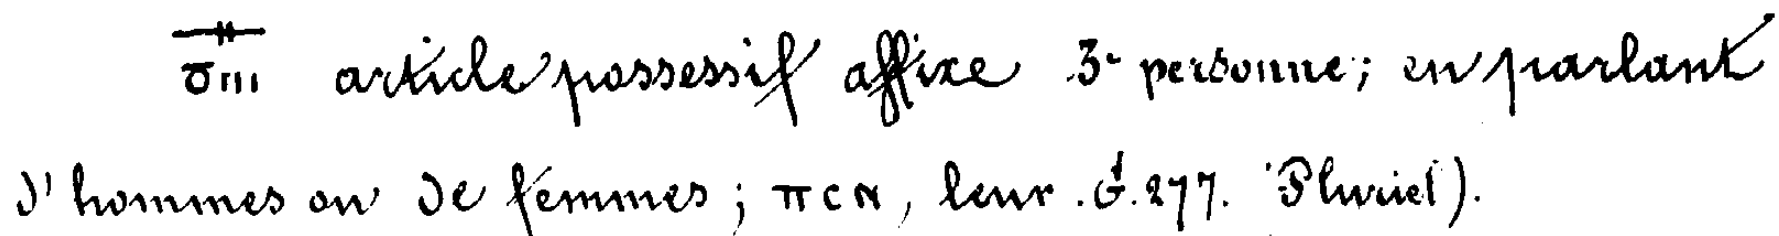 article possessif affixe 3e personne; en parlant
d'hommes ou de femmes; πcн, leur. G. 277. Pluriel).